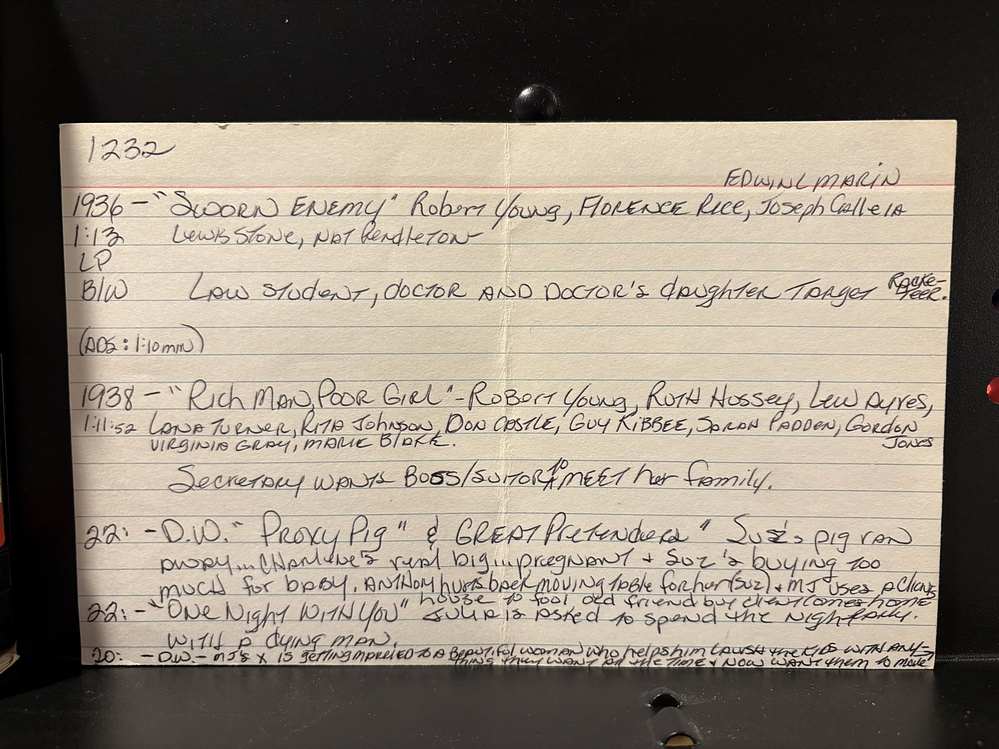 1232
EDWIN L MARIN
1936 - "SWORN ENEMY" Robert Young, FLORENCE RICE, Joseph Calleia
1:13 Lewis STONE, NAT Pendleton
LP
B/W LAW STUDENT, dOCTOR AND DOCTOR'S daughter TARGET RACKE-
TEER.
(ADS: 1:10 min)
1938 - "Rich MAN, POOR GIRL" - ROBERT YOUNG, RUTH HUSSEY, Lew Ayres,
1:11:52 LANA TURNER, RITA Johnson, DON CASTLE, GUY KIBBEE, SARAH PADDEN, GORDON
JONES
VIRGINIA GRAY, MARIE BLAKE.
Secretary WANTS BOSS/SUITOR to MEET her family.
22: - D.W. "PROXY Pig" & GREAT Pretenders" Suz's pig ran
away... CHARlene's real big... pregnant + Suz's buying too
much for baby, ANTHONY hurts back moving table for her (suz) + MJ uses a clients
house to fool old friend but client comes home
early.
22: - "One Night With You" Julia is asked to spend the night
with a dying man.
20: - D.W. - MJ's X is getting married to a beautiful woman who helps him lavish the kids with any-
thing they want all the time + now want them to move